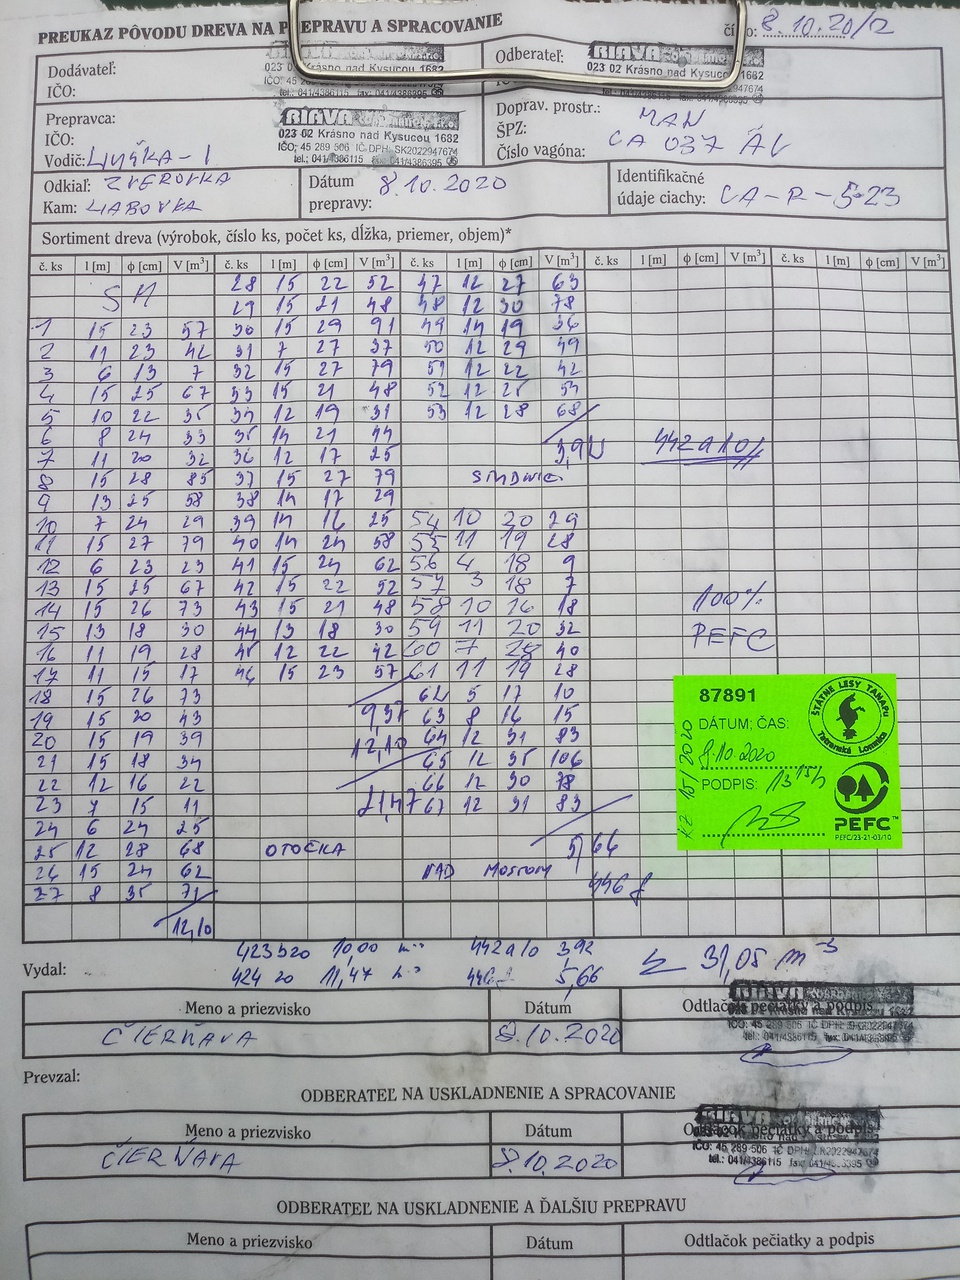 PREUKAZ PÔVODU DREVA NA PREPRAVU A SPRACOVANIE
číslo: 8.10.20/2
Dodávateľ:
IČO:
RIAVA
023 02 Krásno nad Kysucou 1682
tel.: 041/4386115
Odberateľ:
RIAVA
023 02 Krásno nad Kysucou 1682
tel.: 041/4386115 fax: 041/4386395
Prepravca:
IČO:
Vodič:
RIAVA
023 02 Krásno nad Kysucou 1682
IČO: 45 289 506 IČ DPH: SK2022947674
tel.: 041/4386115 fax: 041/4386395
Doprav. prostr.: MAN
ŠPZ: CA 037 AV
Číslo vagóna:
Odkiaľ: ZVEROVKA
Kam: HABOVKA
Dátum prepravy: 8.10.2020
Identifikačné údaje ciachy: CA-R-5-23
Sortiment dreva (výrobok, číslo ks, počet ks, dĺžka, priemer, objem)*
č. ks l [m] ϕ [cm] V [m³] č. ks l [m] ϕ [cm] V [m³] č. ks l [m] ϕ [cm] V [m³] č. ks l [m] ϕ [cm] V [m³] č. ks l [m] ϕ [cm] V [m³]
SM 28 15 22 52 47 12 27 63
29 15 21 48 48 12 30 78
1 15 23 57 30 15 29 91 49 14 19 36
2 11 23 42 31 7 27 37 50 12 29 49
3 6 13 7 32 15 27 79 51 12 22 42
4 15 25 67 33 15 21 48 52 12 25 54
5 10 22 35 34 12 19 31 53 12 28 68
6 8 24 33 35 14 21 44
7 11 20 32 36 12 17 25 442a10
8 15 28 85 37 15 27 79
9 13 25 58 38 14 17 29
10 7 24 29 39 14 16 25 54 10 20 29
11 15 27 79 40 14 24 58 55 11 19 28
12 6 23 23 41 15 24 62 56 4 18 9
13 15 25 67 42 15 22 52 57 3 18 7
14 15 26 73 43 15 21 48 58 10 16 18 100%
15 13 18 30 44 13 18 30 59 11 20 32 PEFC
16 11 19 28 45 12 22 42 60 7 28 40
17 11 15 17 46 15 23 57 61 11 19 28
18 15 26 73 62 5 17 10
19 15 20 43 9,37 63 8 16 15
20 15 19 39 12,10 64 12 31 83
21 15 18 34 65 12 35 106
22 12 16 22 66 12 30 78
23 7 15 11 21,47 67 12 31 83
24 6 24 25
25 12 28 68 OTOČKA 5,66
26 15 24 62 NAD MOSTOM
27 8 35 71 446
12,10
87891
DÁTUM; ČAS:
8.10.2020
PODPIS: 13 15h
KZ 15/2020
ŠTÁTNE LESY TANAPu
Tatranská Lomnica
PEFC™
PEFC/23-21-03/10
423b20 10,00 m 442a10 3,92 Σ 31,05 m³
424 20 11,47 5,66
Vydal:
Meno a priezvisko Dátum Odtlačok pečiatky a podpis
ČIERŇAVA 8.10.2020
RIAVA
IČO: 45 289 506 IČ DPH: SK2022947674
tel.: 041/4386115
Prevzal:
ODBERATEĽ NA USKLADNENIE A SPRACOVANIE
Meno a priezvisko Dátum Odtlačok pečiatky a podpis
ČIERŇAVA 8.10.2020
RIAVA
IČO: 45 289 506 IČ DPH: SK2022947674
tel.: 041/4386115 fax: 041/4386395
ODBERATEĽ NA USKLADNENIE A ĎALŠIU PREPRAVU
Meno a priezvisko Dátum Odtlačok pečiatky a podpis